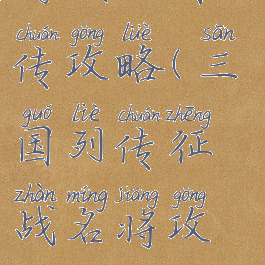 chuán gōng lüè sān
传攻略(三
guó liè chuán zhēng
国列传征
zhàn míng jiāng gōng
战名将攻